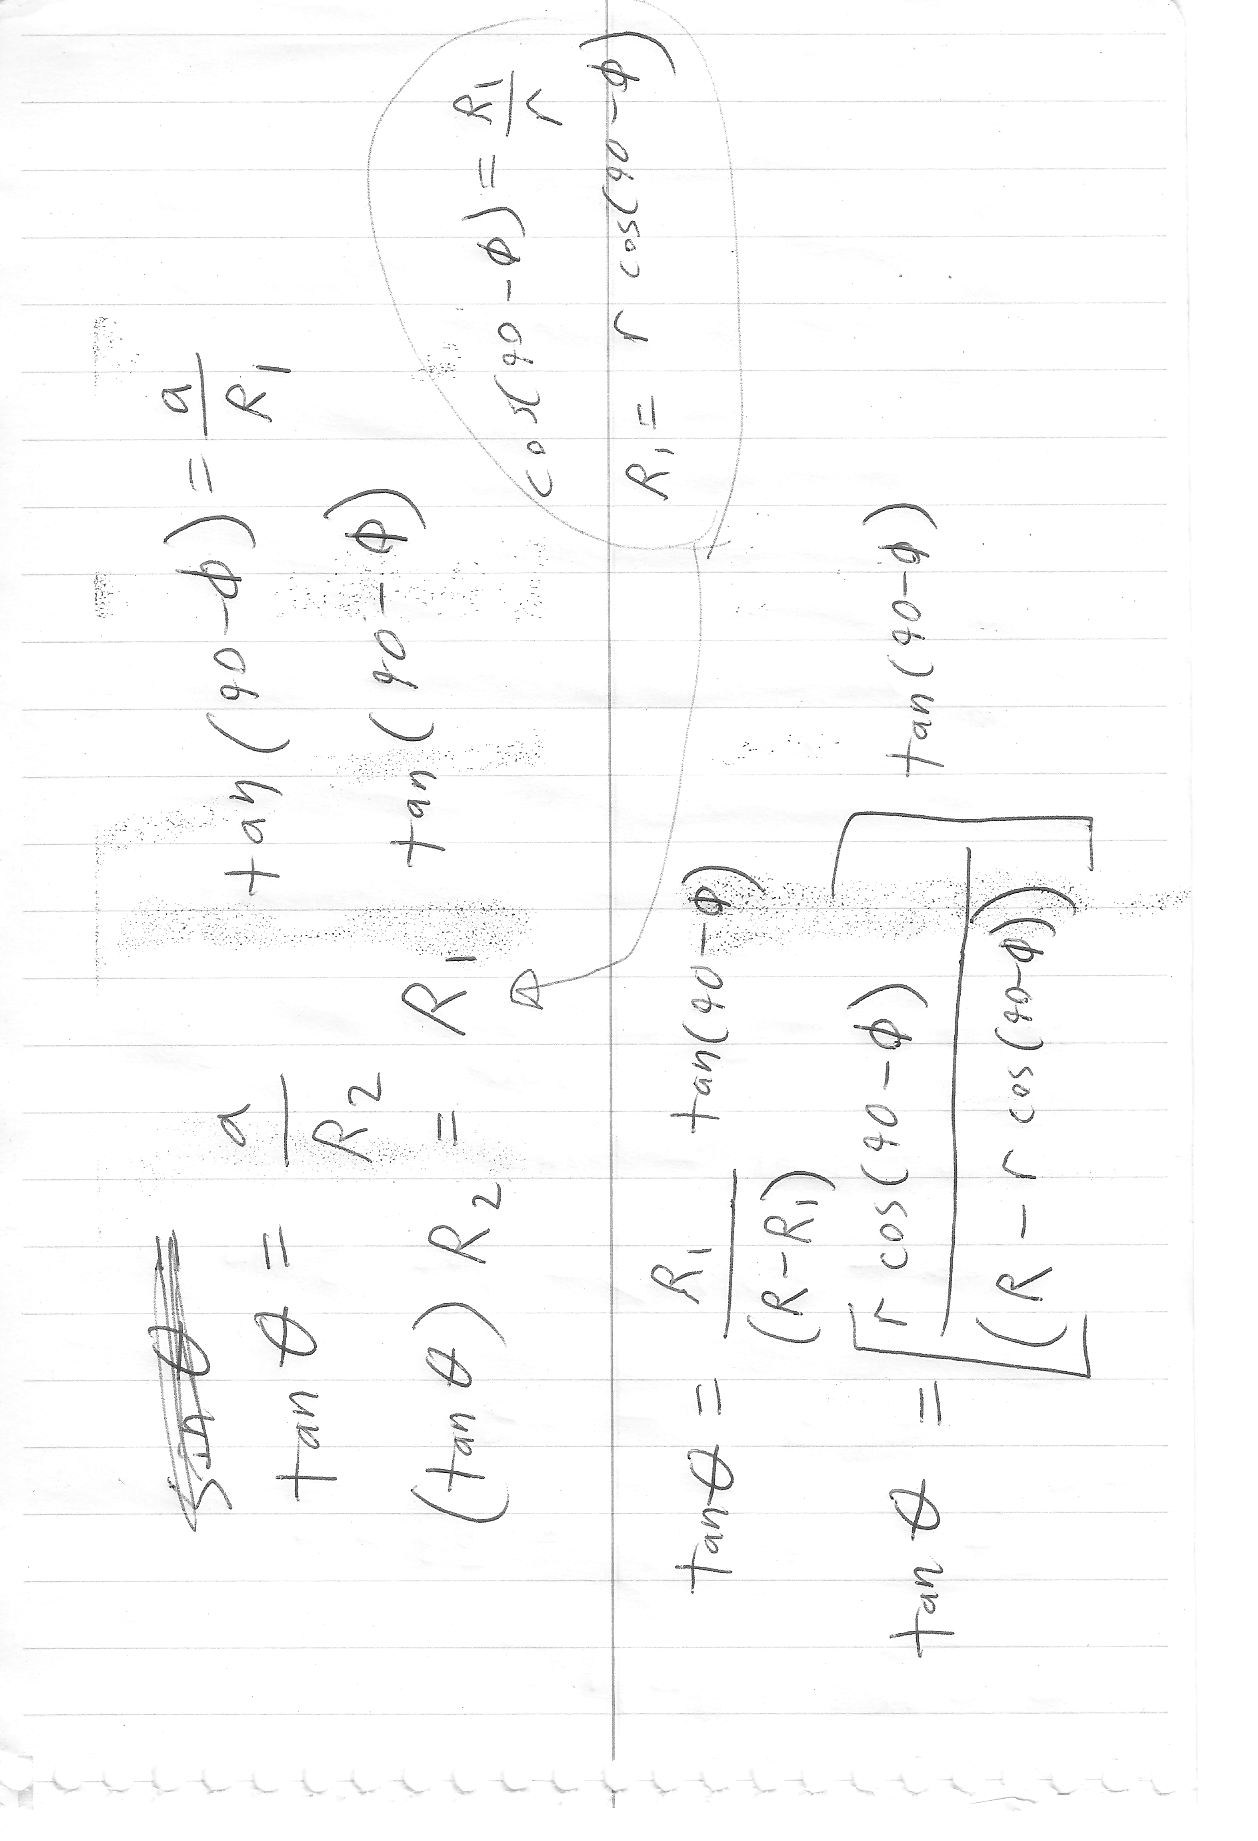 sin θ
tan θ = a/R2 tan(90-ϕ) = a/R1
(tan θ) R2 = R1 tan(90-ϕ)
cos(90-ϕ) = R1/r
R1 = r cos(90-ϕ)
tan θ = R1/(R-R1) tan(90-ϕ)
tan θ = [r cos(90-ϕ)/(R - r cos(90-ϕ))] tan(90-ϕ)